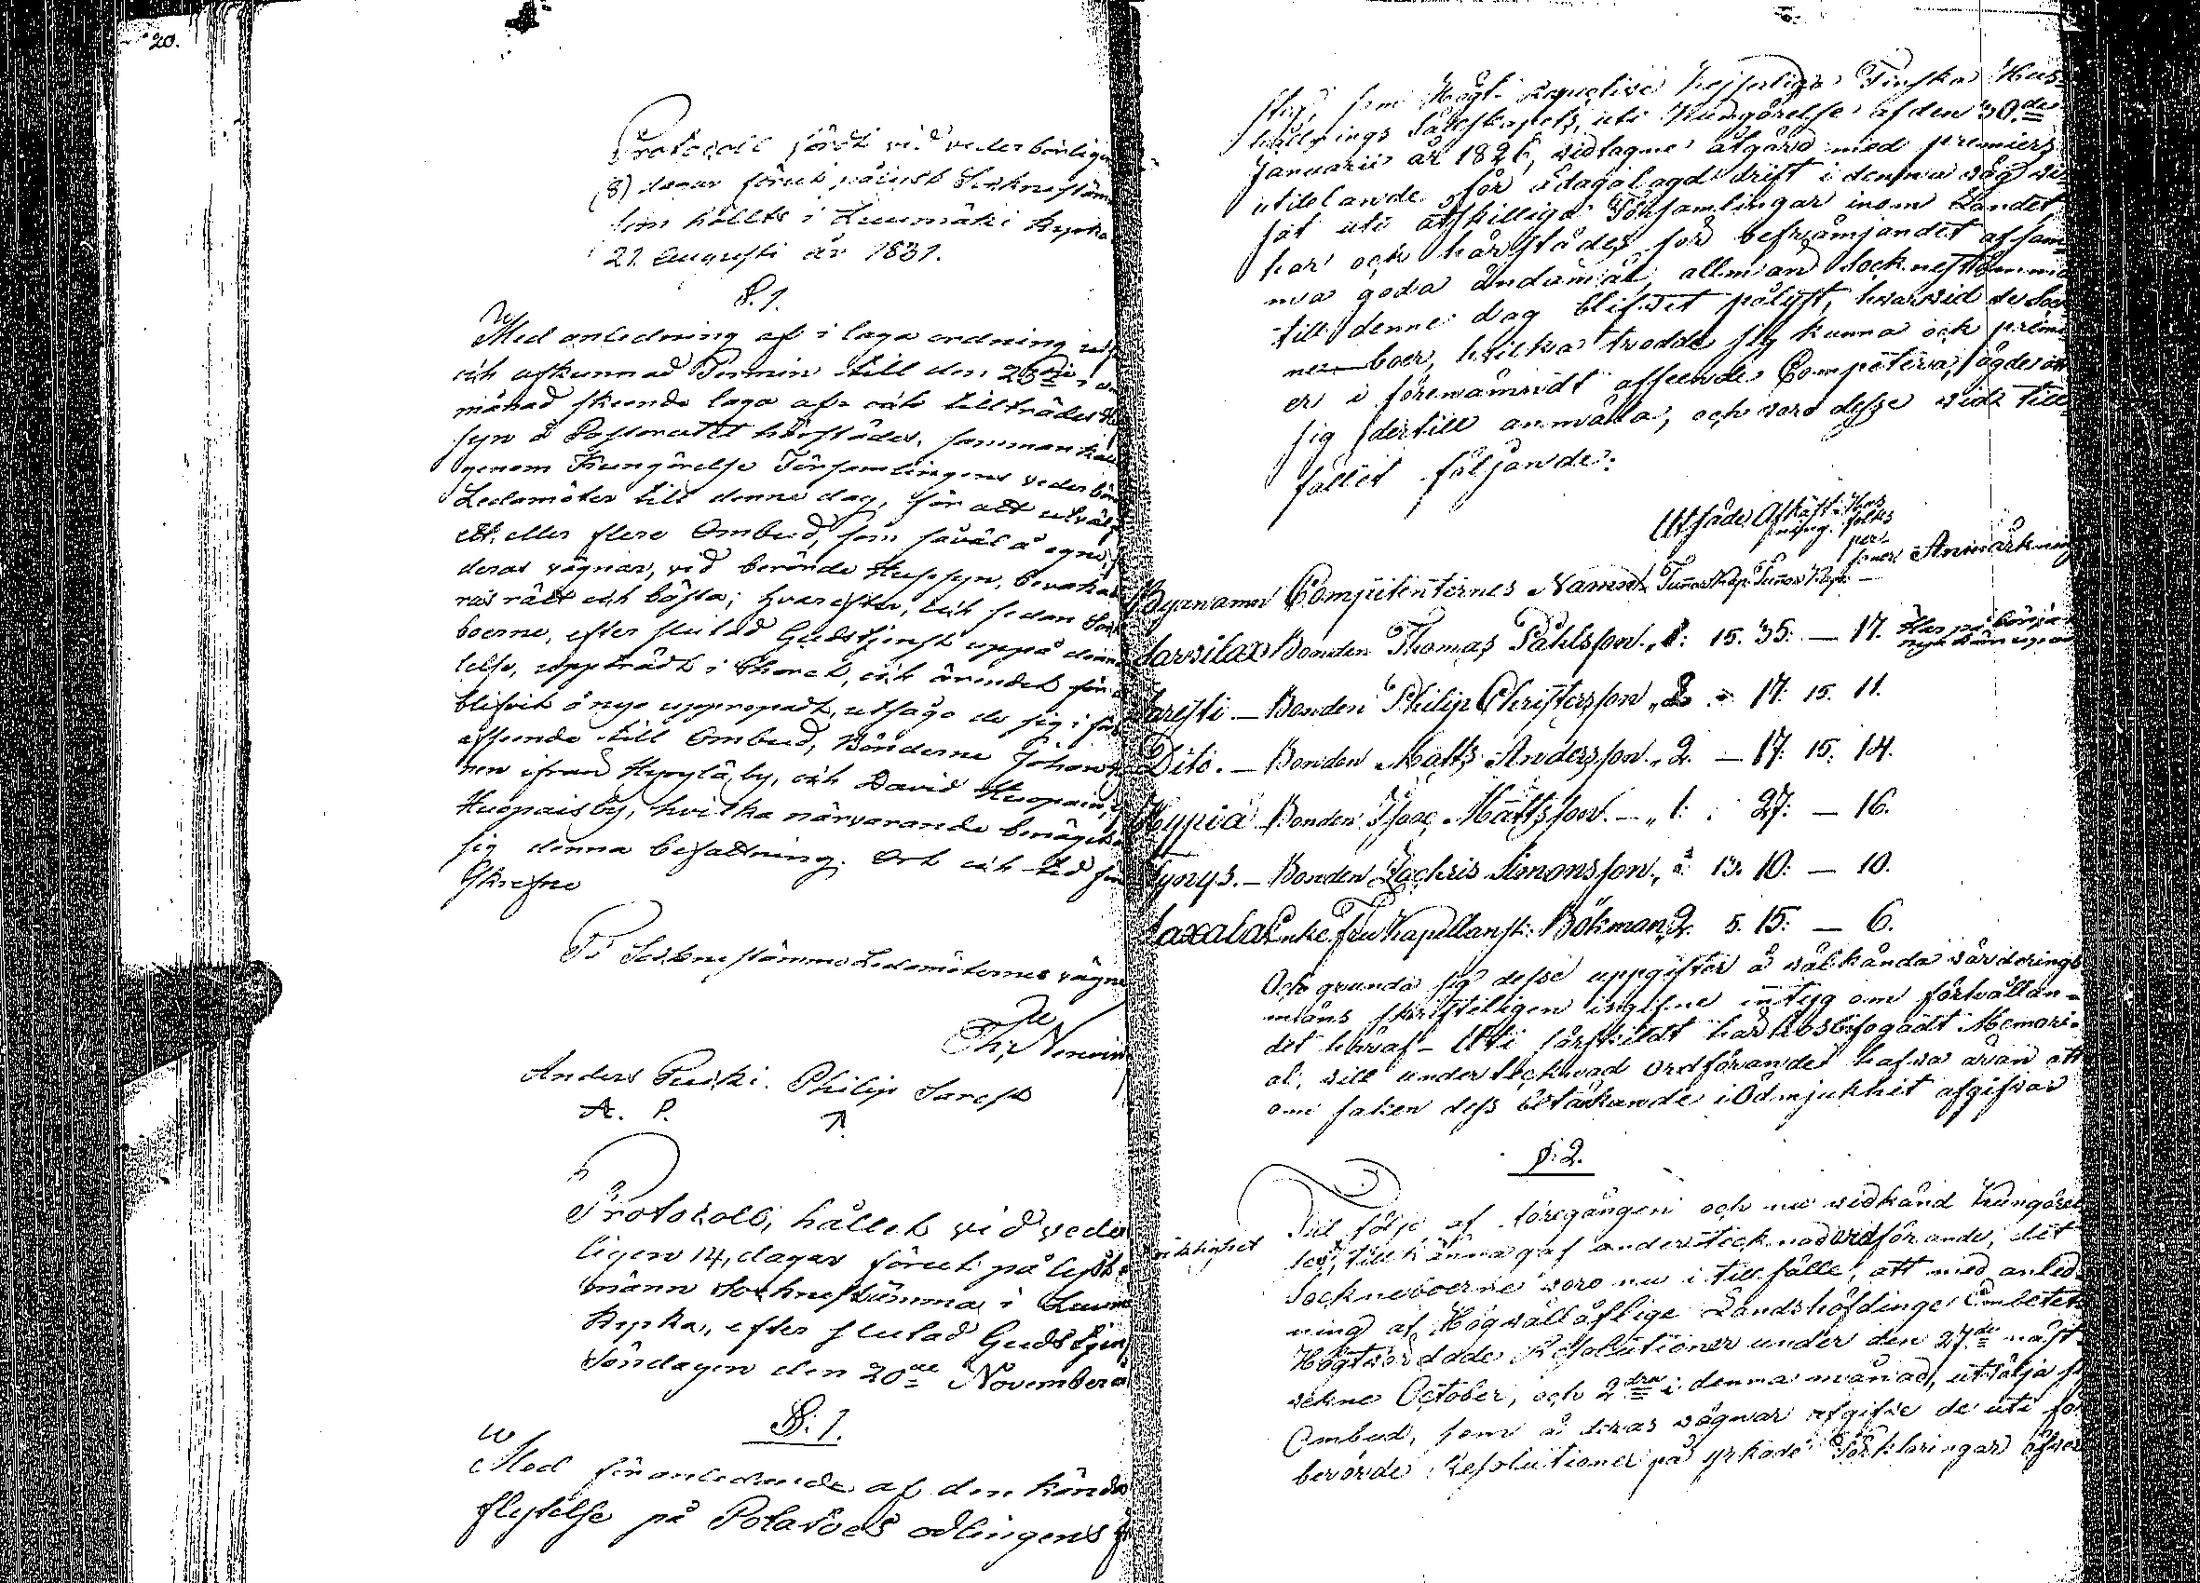 20.
Protocoll fördt vid vederbörligen
(8) dagar förut pålyst Socknestäm
som hölts i Luumäki kyrka
21 Augusti år 1831.
§. 1.
Med anledning af i laga ordning
och utkunnad Termin till den 23die i
månad skeende laga af- och tillträdes
syn å Pastorattet härstädes, samman
genom Kungörelse Församlingens vederbör
Ledamöter till denne dag, för att utvälj
ett eller flere Ombud, som såväl å egne,
deras vägnar, vid berörde Huussyn, bevaka
ras rätt och bästa; hvarefter, och sedan Sock
boerne, efter slutad Gudstjenst uppå denna
lelse, uppträdt i Choret, och ärendet för
blifvit ånyo upropadt, utsågo de sig i
afseende till Ombud, Bönderne Johan
nen ifrån Hyrylä by, och David Huopain,
Huopais by, hvilka närvarande benägit
sig denna befattning. Ort och tid
skrefne
På Sockne stämmo Ledamöternes vägna
Th:
Anders Puiki. Philip Sarest
A. P.
Protokoll, hållet vid veder
ligen 14, dagar förut på lyst
männ Sockne stämma i Luum
kyrka, efter slutad Gudstjen
Söndagen den 20de November
§: 1.
Med föranledande af den kända
flytelse på Potatoes odlingens
stig, som Kejserliga Finska Hus-
hållnings Sälskapets, uti Kungörelse af den 30de
Januarii år 1826, vidtagne åtgärd med premiers
utdelande för ådagalagd drift i denna väg
såt uti åtskilliga Församlingar inom Landet
har och härstädes, för befrämjandet af sam
ma goda ändamål, allmän Socknestämma
till denne dag blifvit pålyst, hvarvid de Sock
ne boer, hvilka trodde sig kunna och
er i förenämndt afseende Competera, ägde
sig dertill anmäla, och voro desse vid till
fället följande:
Utsäde Afkast- Hus
ning. folks
per-
soner Anmärkning
Bynamn Competenternes Namn Tunnor Kap: Tunnor Kap:
Sarvilax Bonden Thomas Påhlsson „ 1: 15. 35: — 17.
Saresti. — Bonden Philip Christersson „ 2 - 17: 15. 11.
Dito. — Bonden Matts Andersson „ 2. — 17: 15: 14.
Bonden Isaac Mattsson. — „ 1: 27: — 16.
Kyrys. — Bonden Zachris Simonsson. „ 13. 10: — 10.
Saxala Enke Fru Kapellansk: Bökman 2. 5. 15: — 6.
Och grunda sig desse uppgifter å välkända värderings
mäns skrifteligen ingifne intyg om förhållan-
det häraf - Uti särskildt härhos bifogadt Memori-
al, vill undertecknad ordförande hafva äran att
om saken dess betänkande i Ödmjukhet afgifva
§: 2.
Till följe af föregången och nu vidkänd Kungörel
se, till känna gaf undertecknad ordförande, det
Sockneboerne voro nu i tillfälle, att med anled
ning af Högvällåflige Landshöfdinge Embetets
Högtvördade Resolutioner under den 27de näst
vekne October, och 2dra i denna månad, utvälja
Ombud, som å deras vägnar afgifve de uti för
berörde Resolutioner på yrkade Förklaringar öfver